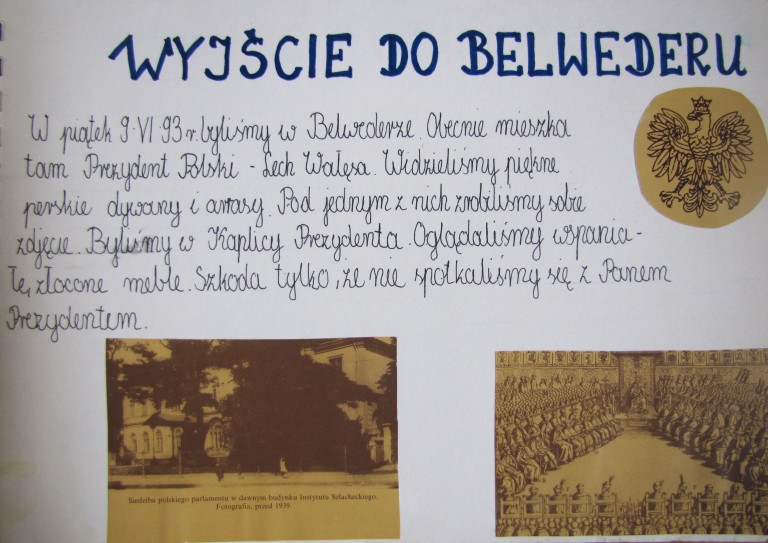 WYJŚCIE DO BELWEDERU
W piątek 9.VI 93 r. byliśmy w Belwederze. Obecnie mieszka
tam Prezydent Polski - Lech Wałęsa. Widzieliśmy piękne
perskie dywany i arrasy. Pod jednym z nich zrobiliśmy sobie
zdjęcie. Byliśmy w Kaplicy Prezydenta. Oglądaliśmy wspania-
łe, złocone meble. Szkoda tylko, że nie spotkaliśmy się z Panem
Prezydentem.
Siedziba polskiego parlamentu w dawnym budynku Instytutu Szlacheckiego.
Fotografia, przed 1939.